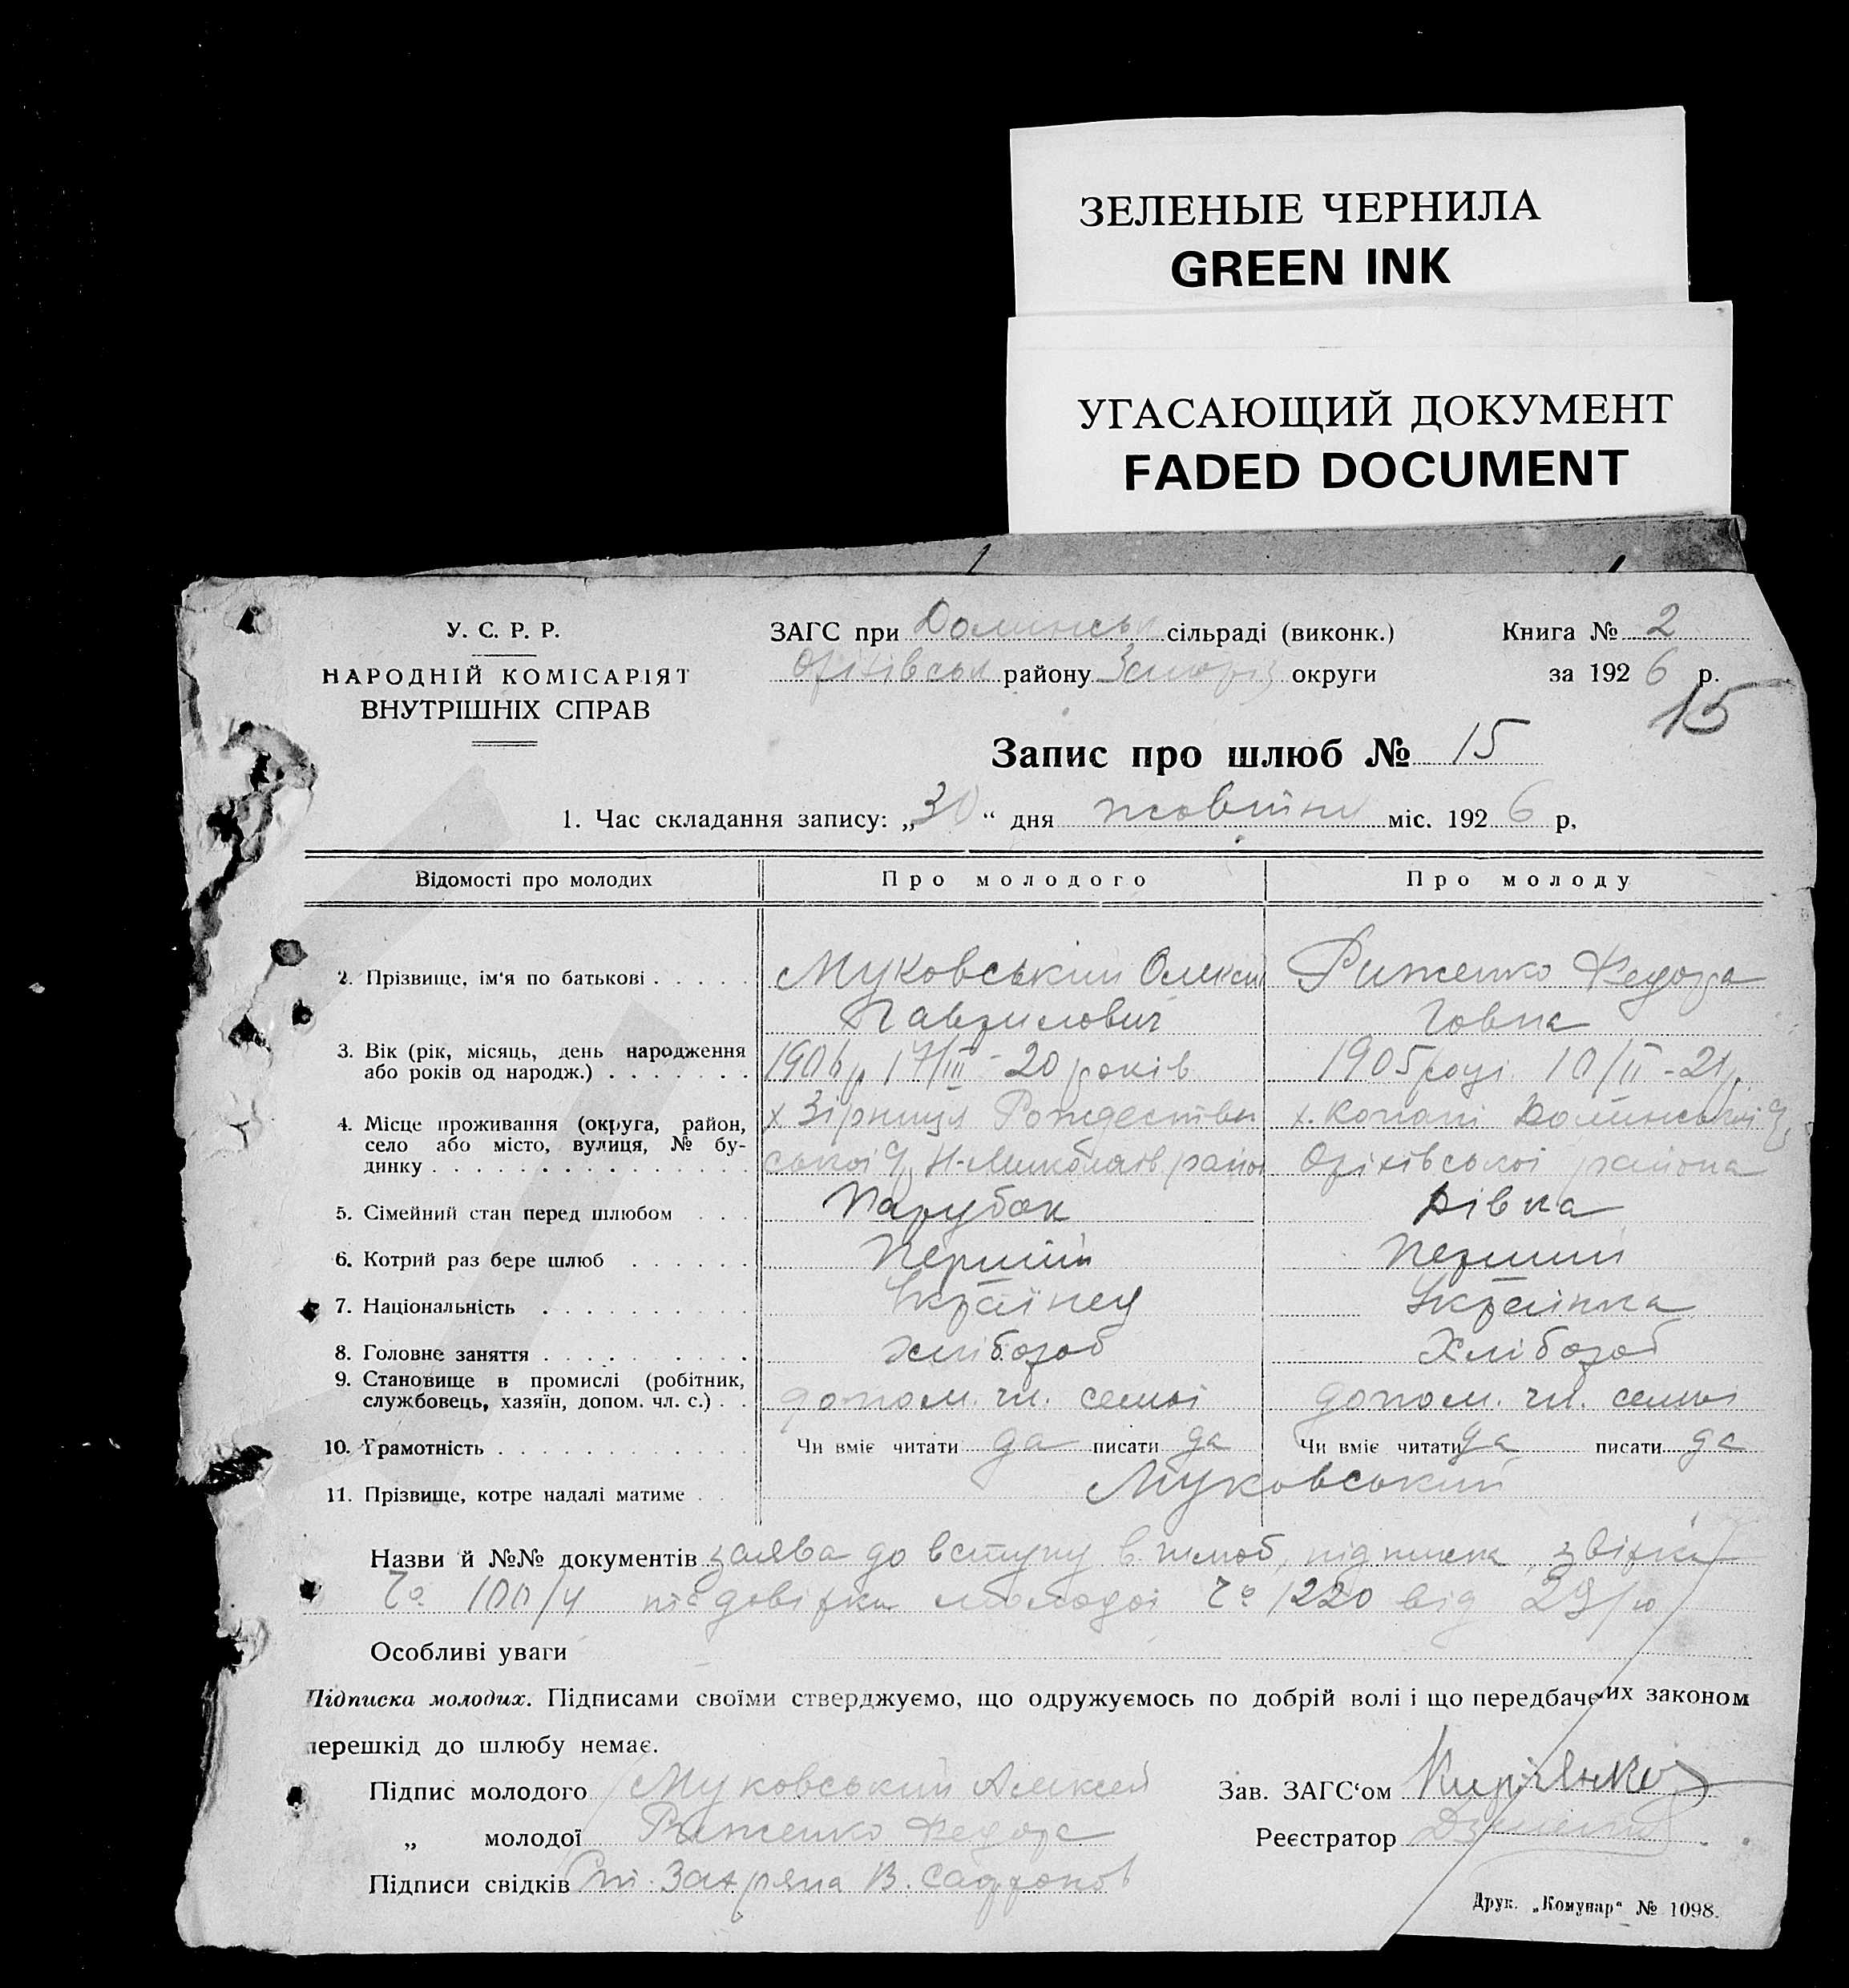 ЗЕЛЕНЫЕ ЧЕРНИЛА
GREEN INK
УГАСАЮЩИЙ ДОКУМЕНТ
FADED DOCUMENT
У. С. Р. Р.
НАРОДНІЙ КОМІСАРІЯТ
ВНУТРІШНІХ СПРАВ
ЗАГС при Долинськ сільраді (виконк.)
Оріхівськ району Запоріз округи
Книга № 2
за 1926 р.
15
Запис про шлюб № 15
1. Час складання запису: „30“ дня жовтня міс. 1926 р.
Відомості про молодих Про молодого Про молоду
2. Прізвище, ім'я по батькові Муковський Олексій Риженко Федора
Гаврилович
3. Вік (рік, місяць, день народження
або років од народж.) 1906 р 17/III - 20 років 1905 році 10/II - 21 р
4. Місце проживання (округа, район, х Зірниця Рождествен х. Копані Долинської
село або місто, вулиця, № бу-
динку ської Н-Миколаїв район Оріхівської района
5. Сімейний стан перед шлюбом Парубок Дівка
6. Котрий раз бере шлюб Перший Перший
7. Національність Українец Українка
8. Головне заняття хлібороб Хлібороб
9. Становище в промислі (робітник,
службовець, хазяїн, допом. чл. с.) допом. чл. семьі допом. чл. семьі
10. Грамотність Чи вміє читати да писати да Чи вміє читати да писати да
11. Прізвище, котре надалі матиме Муковський
Назви й №№ документів заява до вступу в шлюб, підписка, звірка
Ч° 100/4 довірки молодої Ч° 1220 від 29/10
Особливі уваги
Підписка молодих. Підписами своїми стверджуємо, що одружуємось по добрій волі і що передбачених законом
перешкід до шлюбу немає.
Підпис молодого Муковський Алексей
Зав. ЗАГС'ом
„ молодої Риженко Федора
Реєстратор
Підписи свідків В. Сафронов
Друк. „Комунар“ № 1098.